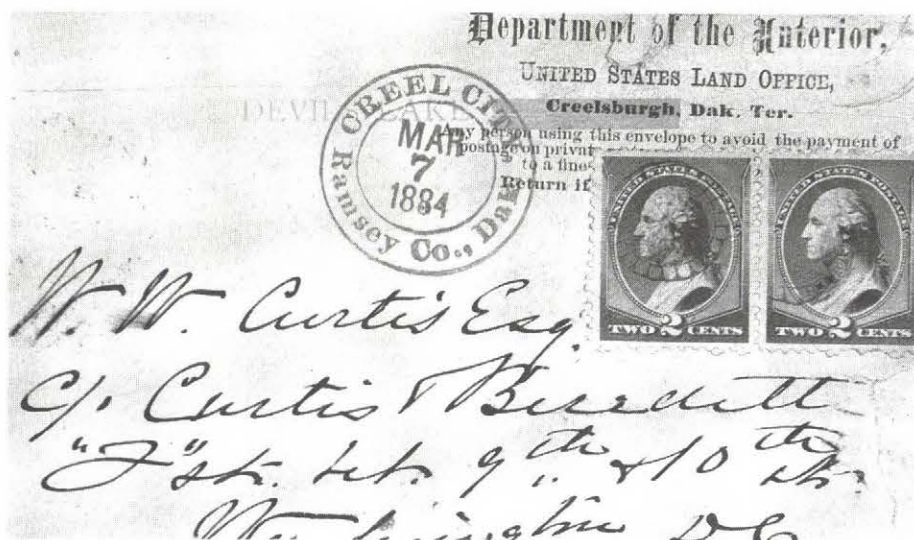 Department of the Interior,
UNITED STATES LAND OFFICE,
Creelsburgh, Dak. Ter.
DEVIL LAKE
Any person using this envelope to avoid the payment of
postage on privat
to a fine
Return if
CREEL CITY
MAR
7
1884
Ramsey Co., Dak.
UNITED STATES POSTAGE
TWO 2 CENTS
UNITED STATES POSTAGE
TWO 2 CENTS
W. W. Curtis Esq.
c/o Curtis & Burdett
"F" st. bet. 9th & 10th st.
Washington D C